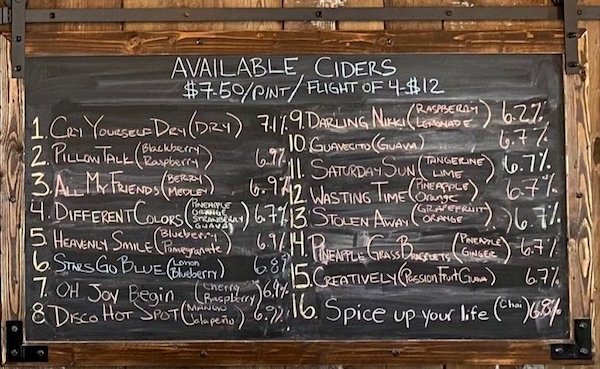 AVAILABLE CIDERS
$7.50/PINT/FLIGHT OF 4-$12
1. CRY YOURSELF DRY (DRY) 7.1%
2. PILLOW TALK (Blackberry Raspberry) 6.9%
3. ALL MY FRIENDS (BERRY MEDLEY) 6.9%
4. DIFFERENT COLORS (PINEAPPLE ORANGE STRAWBERRY GUAVA) 6.7%
5. HEAVENLY SMILE (Blueberry Pomegranate) 6.9%
6. STARS GO BLUE (Lemon Blueberry) 6.8%
7. OH JOY Begin (Cherry Raspberry) 6.9%
8. DISCO HOT SPOT (MANGO Jalapeño) 6.9%
9. DARLING NIKKI (RASPBERRY LEMONADE) 6.2%
10. GUAVECITO (GUAVA) 6.7%
11. SATURDAY SUN (TANGERINE LIME) 6.7%
12. WASTING TIME (PINEAPPLE Orange) 6.7%
13. STOLEN AWAY (GRAPEFRUIT ORANGE) 6.7%
14. PINEAPPLE GRASS BRACELETS (PINEAPPLE GINGER) 6.7%
15. CREATIVELY (PASSION FRUIT GUAVA) 6.7%
16. Spice up your life (Chai) 6.8%